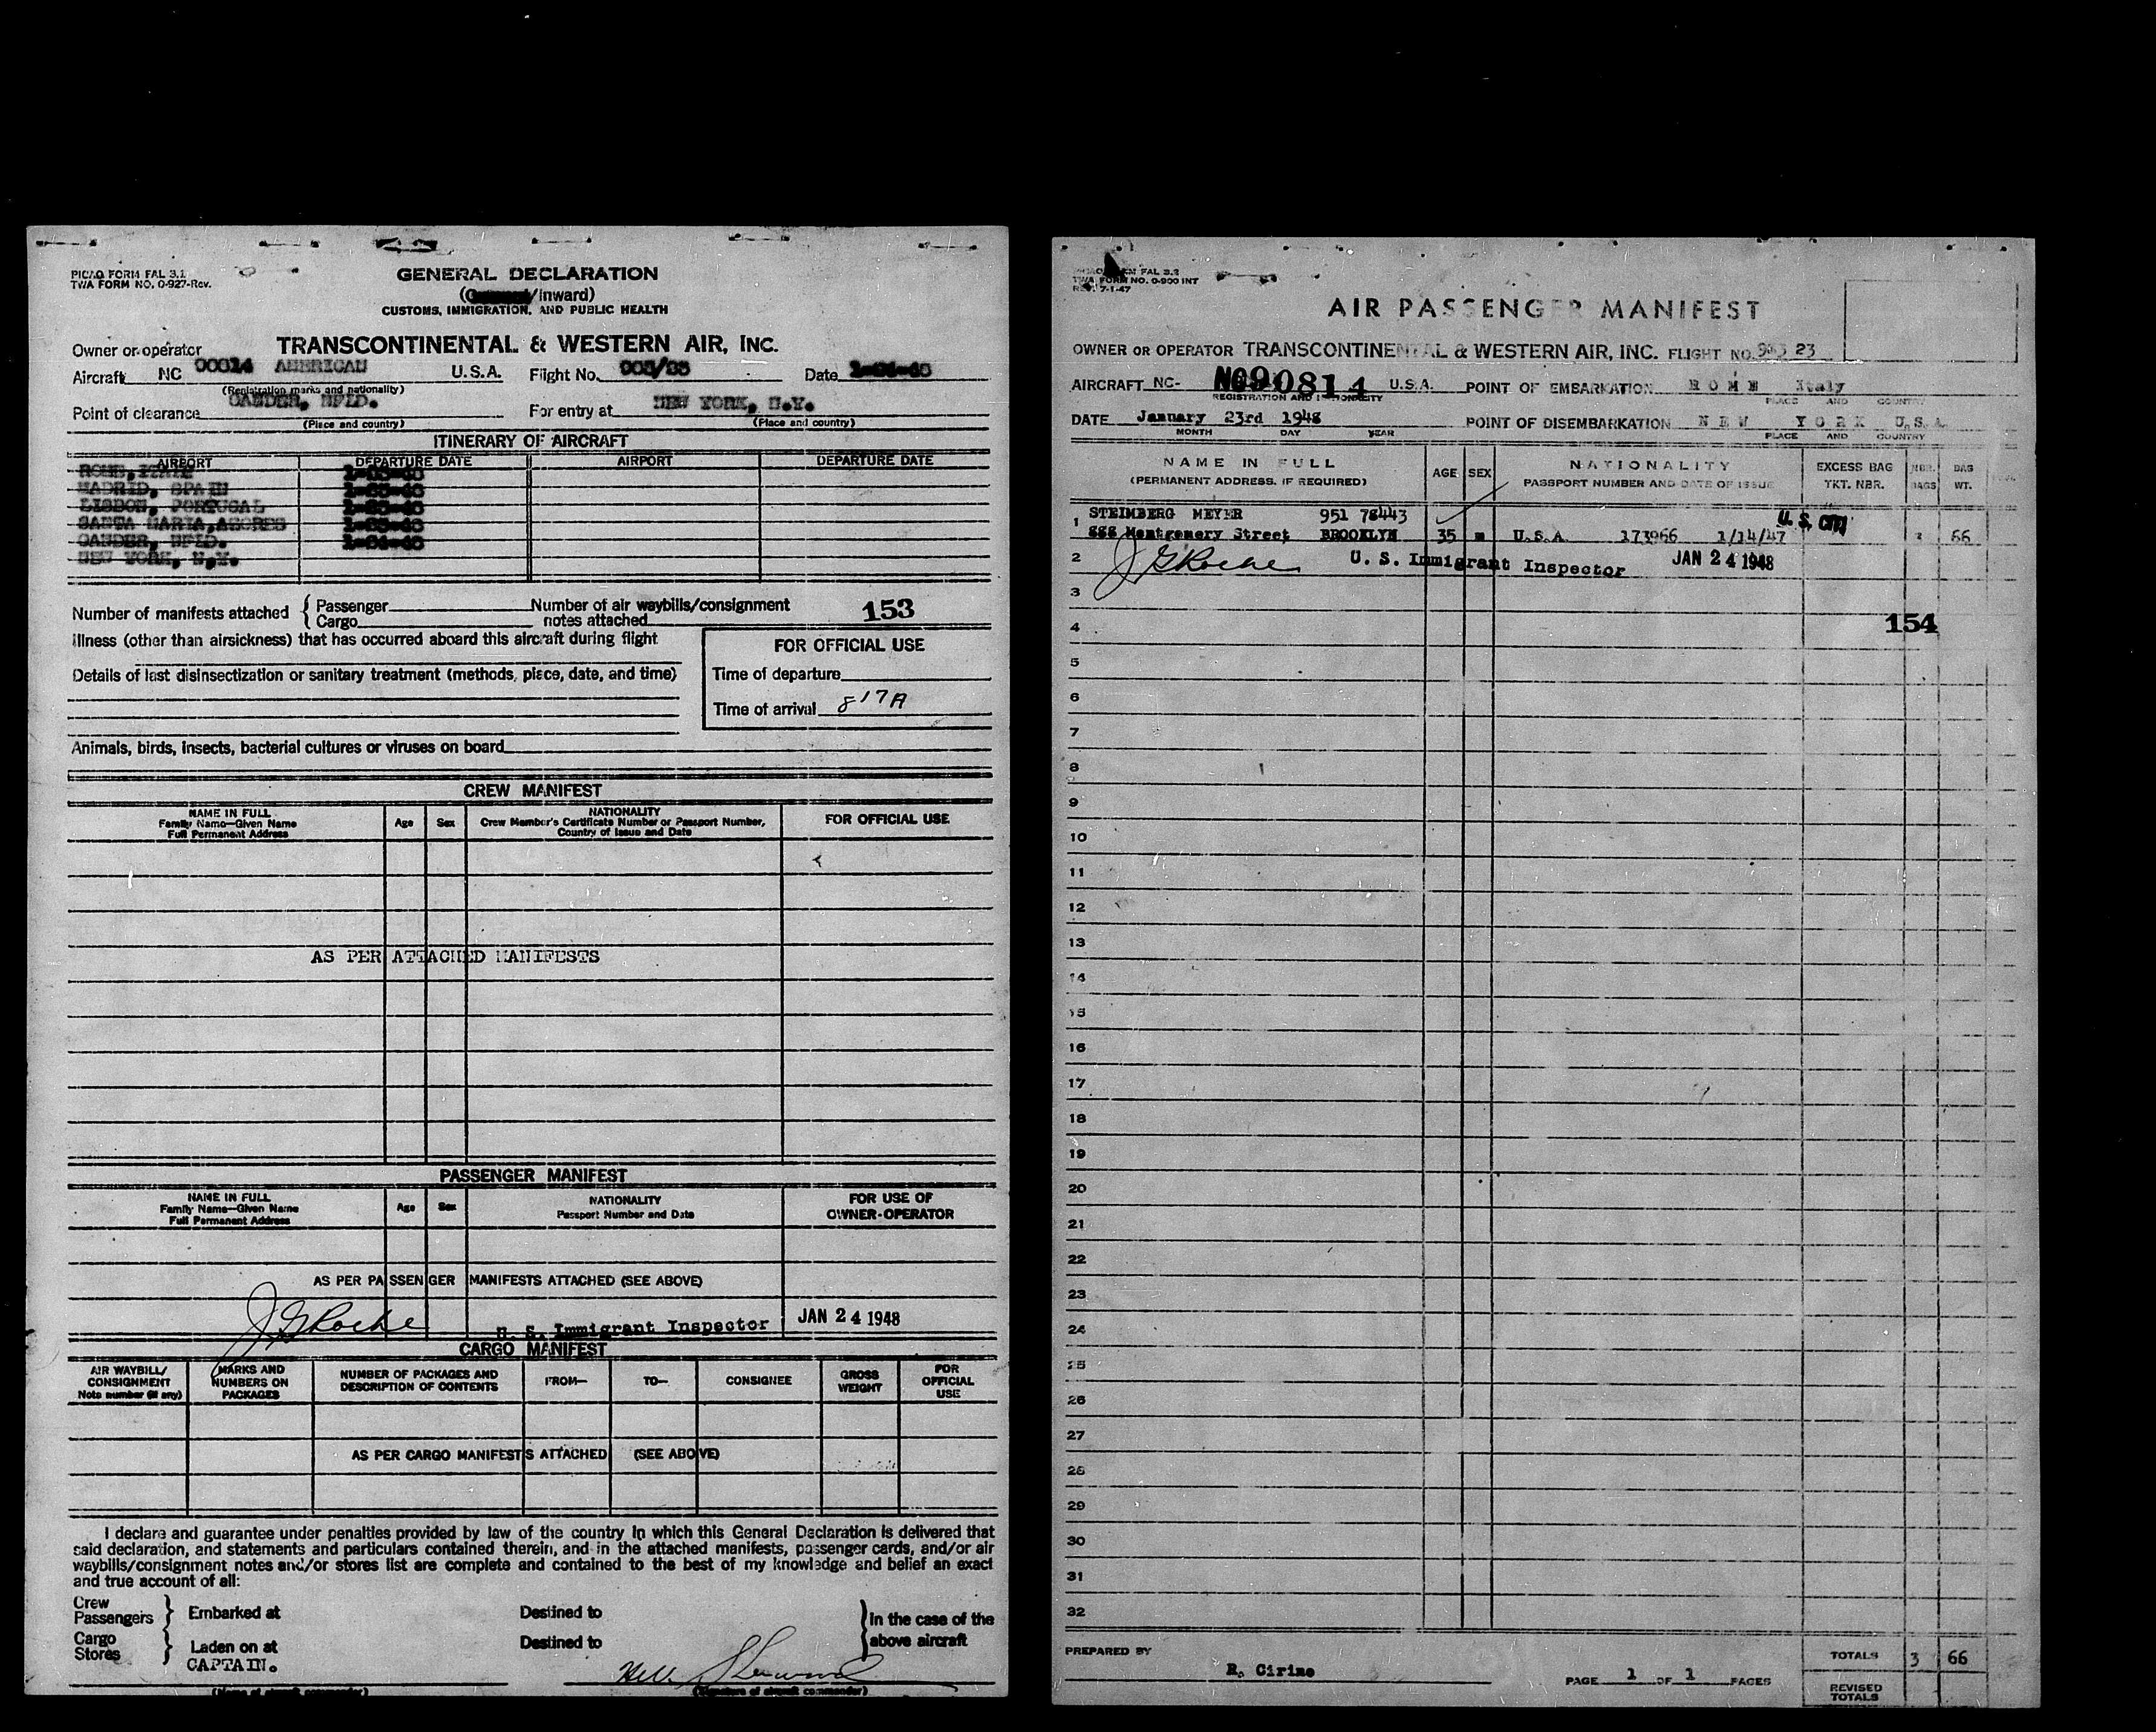 PICAO FORM FAL 3.1
TWA FORM NO. 0-927-Rev.
GENERAL DECLARATION
(/Inward)
CUSTOMS, IMMIGRATION, AND PUBLIC HEALTH
Owner or operator TRANSCONTINENTAL & WESTERN AIR, INC.
Aircraft NC 90814 AMERICAN U.S.A. Flight No. Date 1-24-48
(Registration marks and nationality)
Point of clearance GANDER, NFLD. For entry at NEW YORK, N.Y.
(Place and country) (Place and country)
ITINERARY OF AIRCRAFT
AIRPORT DEPARTURE DATE AIRPORT DEPARTURE DATE
ROME, ITALY 1-23-48
MADRID, SPAIN 1-23-48
LISBON, PORTUGAL 1-23-48
SANTA MARIA, AZORES 1-23-48
GANDER, NFLD. 1-24-48
NEW YORK, N.Y.
Number of manifests attached { Passenger Number of air waybills/consignment 153
Cargo notes attached
Illness (other than airsickness) that has occurred aboard this aircraft during flight
FOR OFFICIAL USE
Details of last disinsectization or sanitary treatment (methods, place, date, and time)
Time of departure
Time of arrival 817A
Animals, birds, insects, bacterial cultures or viruses on board
CREW MANIFEST
NAME IN FULL
Family Name—Given Name
Full Permanent Address
Age Sex
NATIONALITY
Crew Member's Certificate Number or Passport Number,
Country of Issue and Date
FOR OFFICIAL USE
AS PER ATTACHED MANIFESTS
PASSENGER MANIFEST
NAME IN FULL
Family Name—Given Name
Full Permanent Address
Age Sex
NATIONALITY
Passport Number and Date
FOR USE OF
OWNER-OPERATOR
AS PER PASSENGER MANIFESTS ATTACHED (SEE ABOVE)
J G Roche U. S. Immigrant Inspector JAN 24 1948
CARGO MANIFEST
AIR WAYBILL/
CONSIGNMENT
Note number (if any)
MARKS AND
NUMBERS ON
PACKAGES
NUMBER OF PACKAGES AND
DESCRIPTION OF CONTENTS
FROM— TO— CONSIGNEE
GROSS
WEIGHT
FOR
OFFICIAL
USE
AS PER CARGO MANIFESTS ATTACHED (SEE ABOVE)
I declare and guarantee under penalties provided by law of the country in which this General Declaration is delivered that
said declaration, and statements and particulars contained therein, and in the attached manifests, passenger cards, and/or air
waybills/consignment notes and/or stores list are complete and contained to the best of my knowledge and belief an exact
and true account of all:
Crew
Passengers } Embarked at Destined to
Cargo
Stores } Laden on at Destined to
In the case of the
above aircraft
CAPTAIN.
(Name of aircraft commander) (Signature of aircraft commander)
FORM FAL 3.2
TWA FORM NO. 0-900 INT
REV. 7-1-47
AIR PASSENGER MANIFEST
OWNER OR OPERATOR TRANSCONTINENTAL & WESTERN AIR, INC. FLIGHT NO. 23
AIRCRAFT NC- NC90814 U.S.A. POINT OF EMBARKATION ROME Italy
REGISTRATION AND NATIONALITY PLACE AND COUNTRY
DATE January 23rd 1948 POINT OF DISEMBARKATION NEW YORK U.S.A.
MONTH DAY YEAR PLACE AND COUNTRY
NAME IN FULL
(PERMANENT ADDRESS, IF REQUIRED)
AGE SEX
NATIONALITY
PASSPORT NUMBER AND DATE OF ISSUE
EXCESS BAG
TKT. NBR.
NBR.
BAGS
BAG
WT.
STEIMBERG MEYER 951 78443
1 888 Montgomery Street BROOKLYN 35 m U.S.A. 173966 1/14/47 U.S. CITI 66
2 J G Roche U. S. Immigrant Inspector JAN 24 1948
3
4 154
5
6
7
8
9
10
11
12
13
14
15
16
17
18
19
20
21
22
23
24
25
26
27
28
29
30
31
32
PREPARED BY R. Cirino PAGE 1 OF 1 PAGES
TOTALS 3 66
REVISED
TOTALS